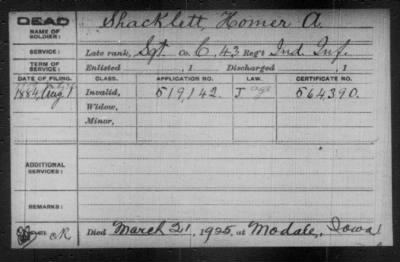 DEAD Shacklett, Homer A.
NAME OF SOLDIER:
SERVICE: Late rank, Sgt. Co. C, 43 Reg't Ind. Inf.
TERM OF SERVICE: Enlisted , 1 Discharged , 1
DATE OF FILING. CLASS. APPLICATION NO. LAW. CERTIFICATE NO.
1884, Aug 1 Invalid, 519,142. J 564390.
Widow,
Minor,
ADDITIONAL SERVICES:
REMARKS:
Died March 21, 1925, at Modale, Iowa